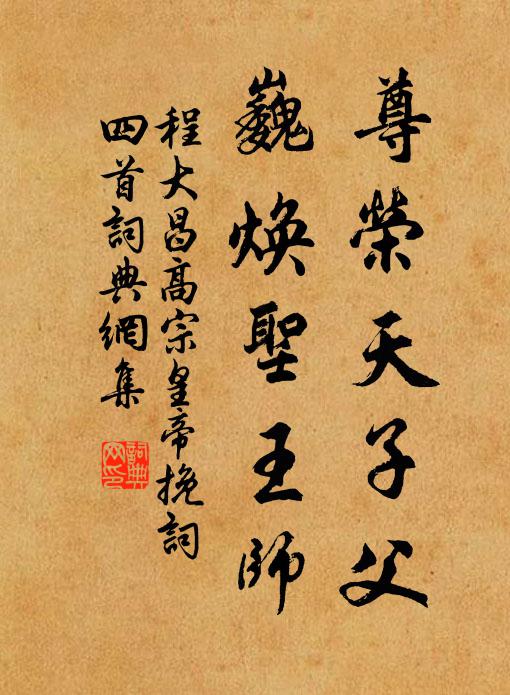 尊榮天子父
巍煥聖王師
程大昌高宗皇帝挽詞
四首詞典網集
詞典
网印